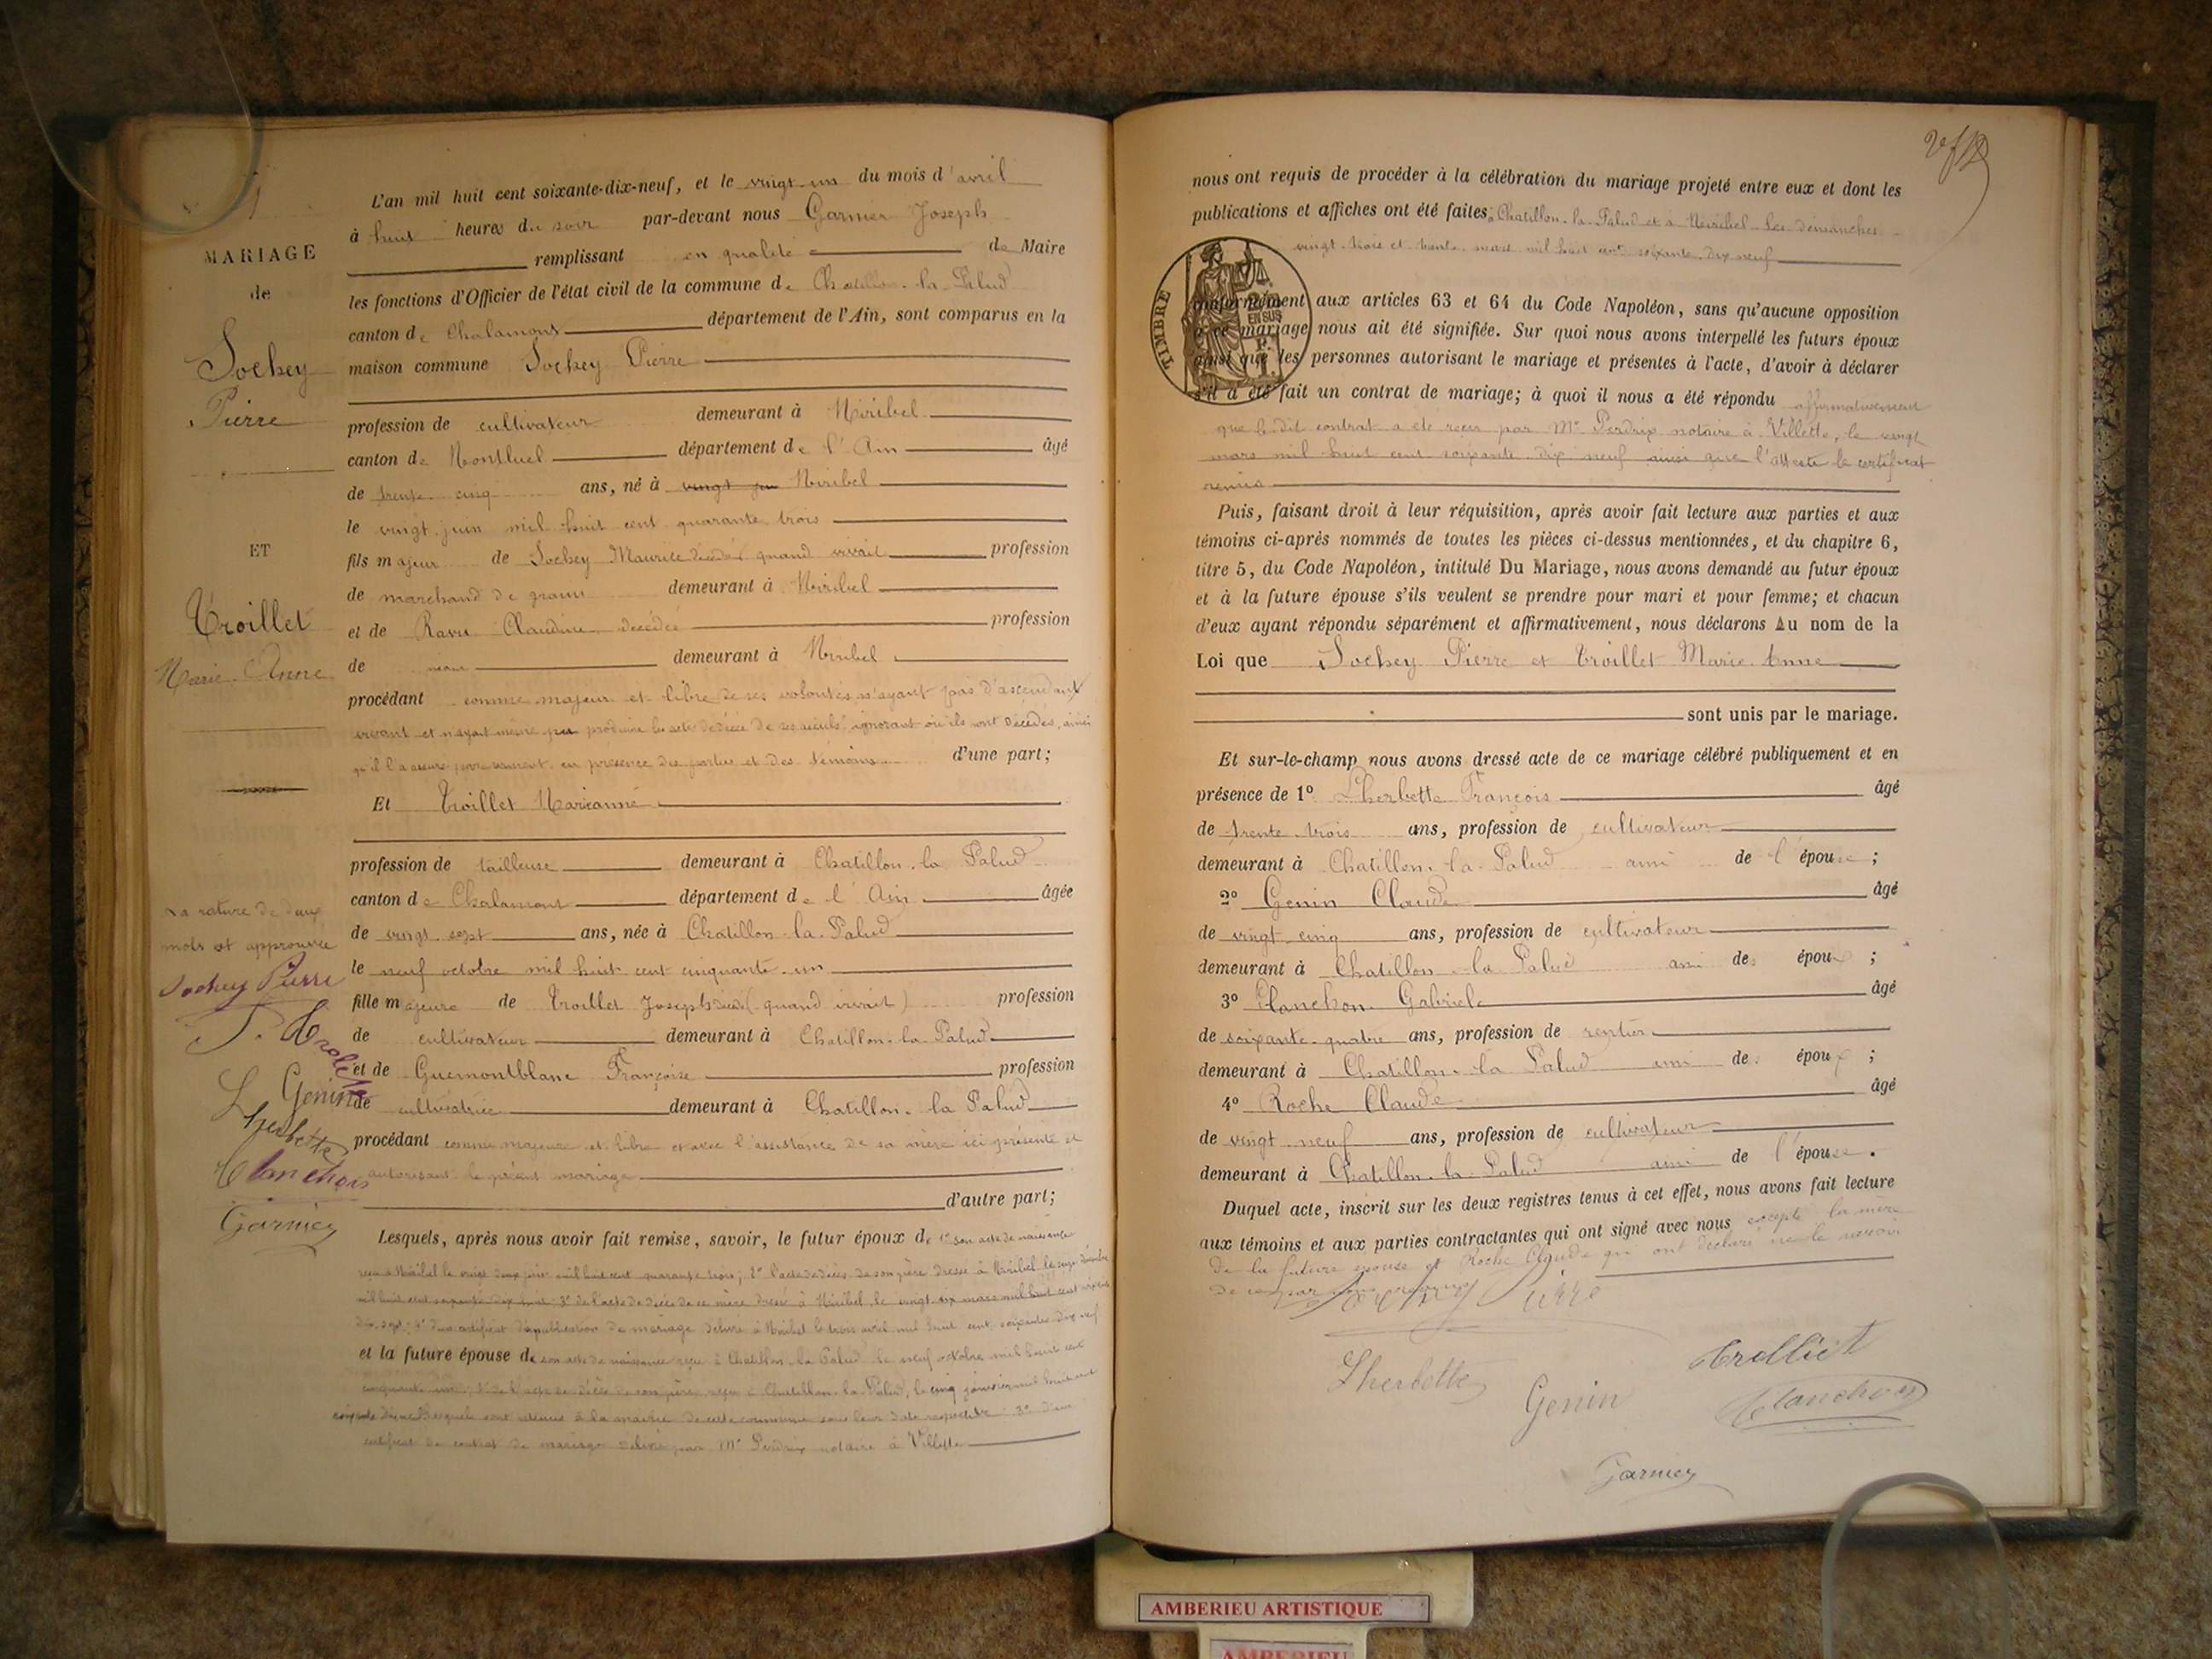 MARIAGE
de
Sochey
Pierre
ET
Troillet
Marie-Anne
La rature de deux
mots est approuvée
Sochey Pierre
Genin
Lherbette
Planchon
Garnier
L'an mil huit cent soixante-dix-neuf, et le vingt-un du mois d'avril
à huit heures du soir par-devant nous Garnier Joseph
remplissant en qualité de Maire
les fonctions d'Officier de l'état civil de la commune de Chatillon-la-Palud
canton de Chalamont département de l'Ain, sont comparus en la
maison commune Sochey Pierre
profession de cultivateur demeurant à Miribel
canton de Montluel département de l'Ain âgé
de trente cinq ans, né à vingt juin Miribel
le vingt juin mil huit cent quarante trois
fils majeur de Sochey Maurice décédé quand vivait profession
de marchand de grains demeurant à Miribel
et de Ravu Claudine décédée profession
de demeurant à Miribel
procédant comme majeur et libre de ses volontés n'ayant pas d'ascendant
vivant et n'ayant même pu produire les actes de décès de ses aïeuls ignorant où ils sont décédés, ainsi
qu'il l'a assuré par serment en présence des parties et des témoins d'une part;
Et Troillet Marieanne
profession de tailleuse demeurant à Chatillon-la-Palud
canton de Chalamont département de l'Ain âgée
de vingt sept ans, née à Chatillon-la-Palud
le neuf octobre mil huit cent cinquante-un
fille majeure de Troillet Joseph décédé (quand vivait) profession
de cultivateur demeurant à Chatillon-la-Palud
et de Guemontblanc Françoise profession
de cultivatrice demeurant à Chatillon-la-Palud
procédant comme majeure et libre et avec l'assistance de sa mère ici présente et
autorisant le présent mariage
d'autre part;
Lesquels, après nous avoir fait remise, savoir, le futur époux de 1° son acte de naissance
reçu à Miribel le vingt deux juin mil huit cent quarante trois; 2° l'acte de décès de son père dressé à Miribel le
mil huit cent soixante dix 3° de l'acte de décès de sa mère dressé à Miribel le vingt six mars mil huit cent
dix sept; 4° d'un certificat de publication de mariage délivré à Miribel le trois avril mil huit cent soixante dix neuf
et la future épouse de son acte de naissance reçu à Chatillon-la-Palud le neuf octobre mil huit cent
cinquante un; 2° de l'acte de décès de son père reçu à Chatillon-la-Palud, le cinq janvier mil huit cent
lesquels sont retenus à la mairie de cette commune sous leur date respective 3° d'un
certificat de contrat de mariage délivré par Me Perdrix notaire à Villette
nous ont requis de procéder à la célébration du mariage projeté entre eux et dont les
publications et affiches ont été faites à Chatillon-la-Palud et à Miribel les dimanches
vingt-trois et trente mars mil huit cent soixante dix neuf
TIMBRE
EN SUS
conformément aux articles 63 et 64 du Code Napoléon, sans qu'aucune opposition
à ce mariage nous ait été signifiée. Sur quoi nous avons interpellé les futurs époux
ainsi que les personnes autorisant le mariage et présentes à l'acte, d'avoir à déclarer
s'il a été fait un contrat de mariage; à quoi il nous a été répondu affirmativement
que le dit contrat a été reçu par Me Perdrix notaire à Villette, le vingt
mars mil huit cent soixante-dix neuf ainsi que l'atteste le certificat
remis
Puis, faisant droit à leur réquisition, après avoir fait lecture aux parties et aux
témoins ci-après nommés de toutes les pièces ci-dessus mentionnées, et du chapitre 6,
titre 5, du Code Napoléon, intitulé Du Mariage, nous avons demandé au futur époux
et à la future épouse s'ils veulent se prendre pour mari et pour femme; et chacun
d'eux ayant répondu séparément et affirmativement, nous déclarons Au nom de la
Loi que Sochey Pierre et Troillet Marie-Anne
sont unis par le mariage.
Et sur-le-champ nous avons dressé acte de ce mariage célébré publiquement et en
présence de 1° Lherbette François âgé
de trente-trois ans, profession de cultivateur
demeurant à Chatillon-la-Palud ami de l'épouse;
2° Genin Claude âgé
de vingt-cinq ans, profession de cultivateur
demeurant à Chatillon-la-Palud ami de époux;
3° Planchon Gabriel âgé
de soixante-quatre ans, profession de rentier
demeurant à Chatillon-la-Palud ami de époux;
4° Roche Claude âgé
de vingt neuf ans, profession de cultivateur
demeurant à Chatillon-la-Palud ami de l'épouse.
Duquel acte, inscrit sur les deux registres tenus à cet effet, nous avons fait lecture
aux témoins et aux parties contractantes qui ont signé avec nous excepté la mère
de la future épouse et Roche Claude qui ont déclaré ne le savoir
de ce par nous requis
Sochey Pierre
Trolliet
Lherbette
Genin
Planchon
Garnier
AMBERIEU ARTISTIQUE
AMBERIEU